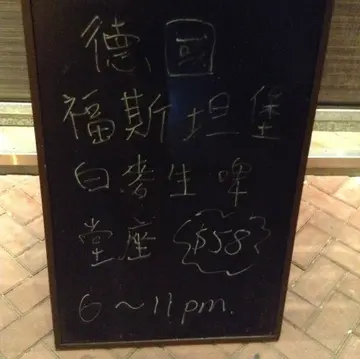 德國
福斯坦堡
白麥生啤
堂座 $58
6～11pm.